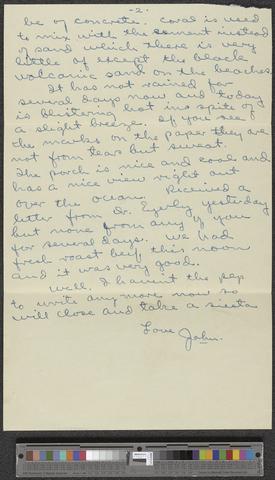 -2-
be of concrete. Coral is used
to mix with the cement instead
of sand which there is very
little of except the black
volcanic sand on the beaches.
It has not rained for
several days now and today
is blistering hot in spite of
a slight breeze. If you see
the marks on the paper they are
not from tears but sweat.
The porch is nice and cool and
has a nice view right out
over the ocean. Received a
letter from Dr. Eyerly yesterday
but none from any of you
for several days. We had
fresh roast beef this noon
and it was very good.
Well, I haven't the pep
to write any more now so
will close and take a siesta
Love John.